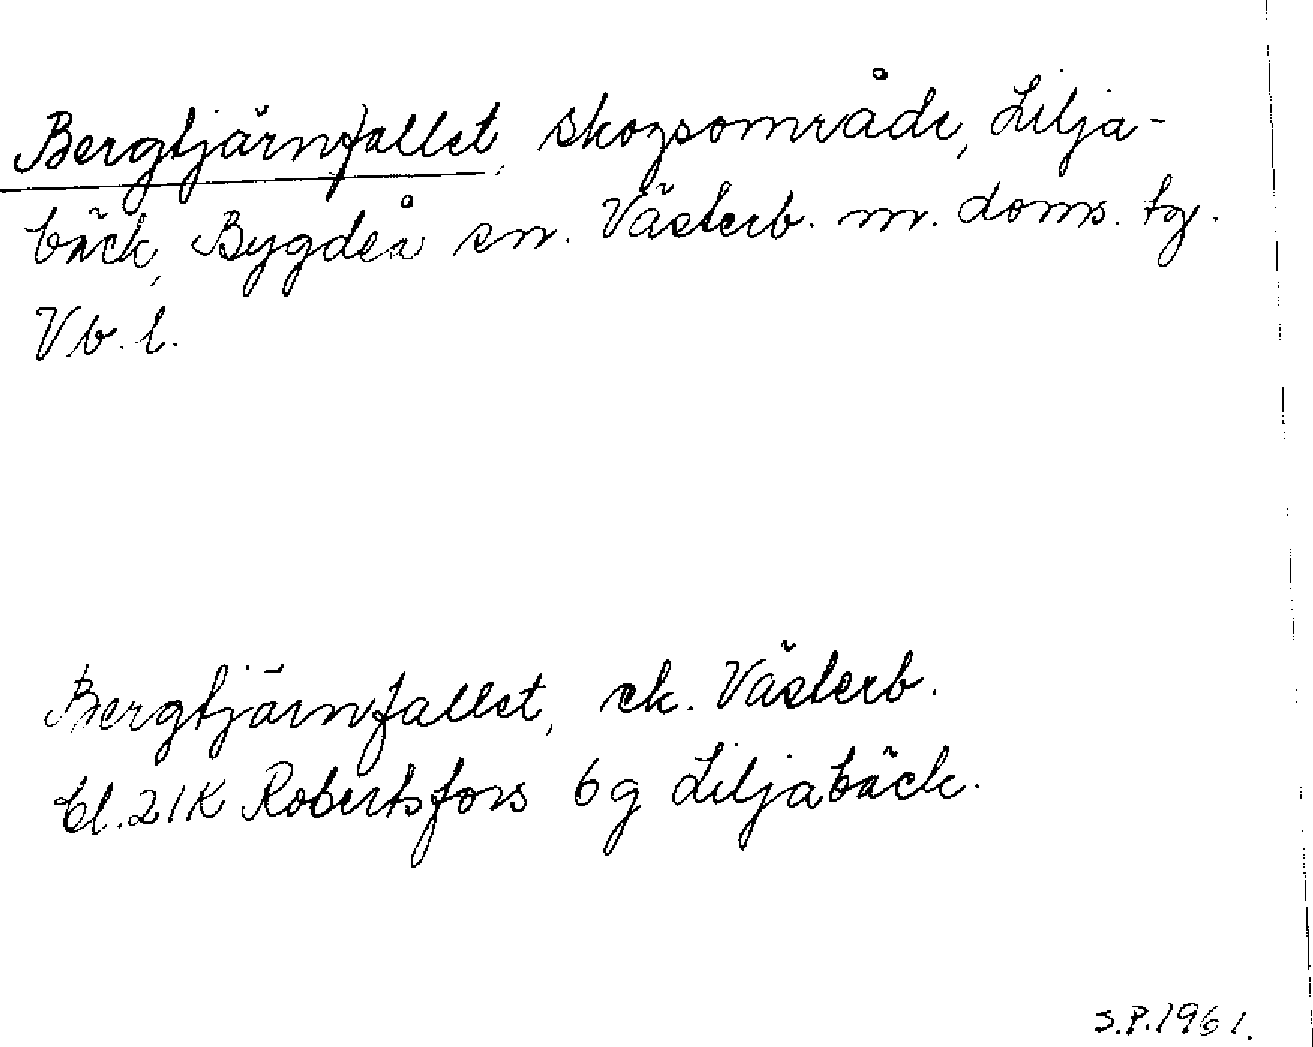 Bergtjärnfallet, skogsområde, Lilja-
bäck, Bygdeå sn. Västerb. m. doms. tg.
Vb. l.
Bergtjärnfallet, ek. Västerb.
bl. 21K Robertsfors 6g Liljabäck.
S.P. 1961.